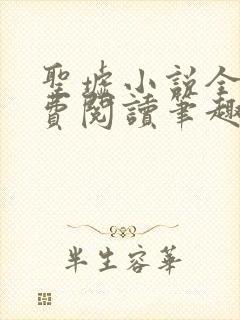 聖墟小說全
費閱讀筆趣
半生容華